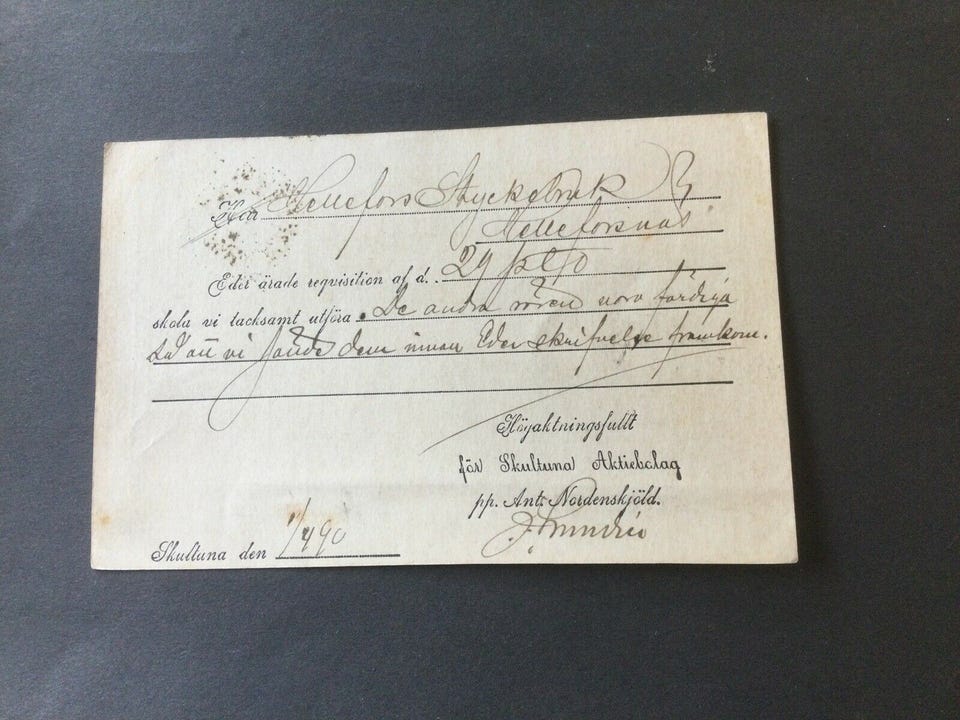 Herr Hellefors Styckebruk
Helleforsnäs
Eder ärade reqvisition af d. 29 pto
skola vi tacksamt utföra. De andra rören voro färdiga
så att vi sände dem innan Eder skrifvelse framkom.
Högaktningsfullt
för Skultuna Aktiebolag
pp. Ant. Nordenskjöld.
Skultuna den 1/4 90